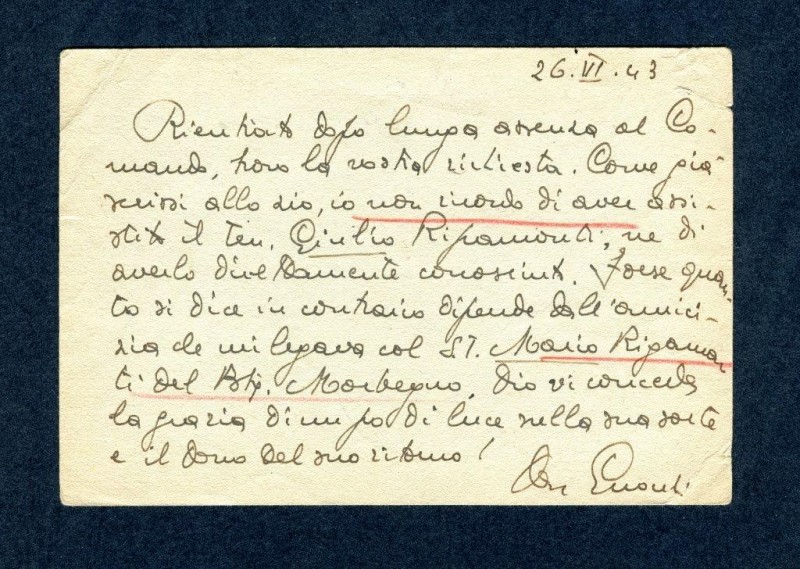 26.VI.43
Rientrato dopo lunga assenza al Co-
mando, trovo la vostra richiesta. Come già
scrissi allo zio, io non ricordo di aver assi-
stito il ten. Giulio Ripamonti, ne di
averlo direttamente conosciuto. Forse quan-
to si dice in contrario dipende dall'amici-
zia che mi legava col ST. Mario Ripamon
ti del Btg. Morbegno. Dio vi conceda
la grazia di un po di luce sulla sua sorte
e il dono del suo ritorno!
Don